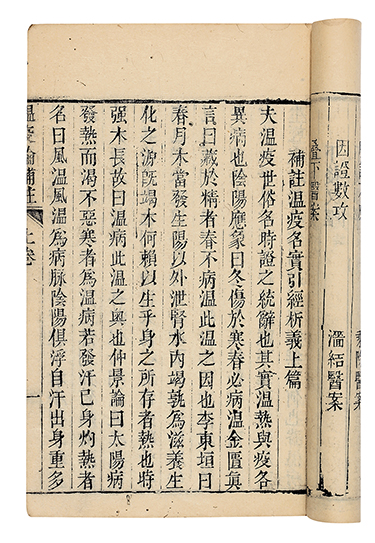 因證數攻 濫結醫案
補註溫疫名實引經析義上篇
夫溫疫世俗名時證之統辭也其實溫熱與疫各
異病也陰陽應象曰冬傷於寒春必病溫金匱真
言曰藏於精者春不病溫此溫之因也李東垣曰
春月木當發生陽以外泄腎水內竭孰為滋養生
化之源既竭木何賴以生乎身之所存者熱也時
强木長故曰溫病此溫之奧也仲景論曰太陽病
發熱而渴不惡寒者為溫病若發汗已身灼熱者
名曰風溫風溫為病脉陰陽俱浮自汗出身重多
溫疫論補註 上卷